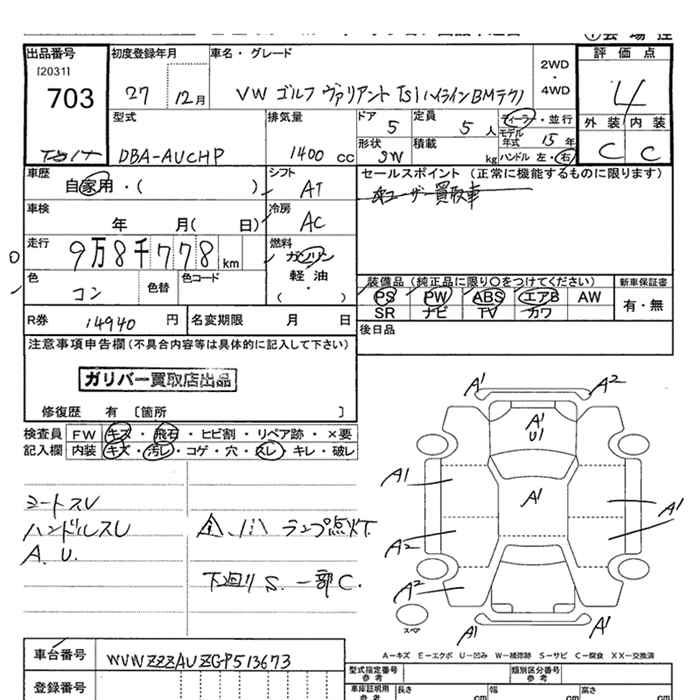 出品番号 初度登録年月 車名・グレード 2WD・4WD 評価点
(12031)
703 27 12月 VW ゴルフ ヴァリアント TSI ハイラインBMテクノ 4
型式 排気量 ドア 定員 ディーラー・並行 外装 内装
DBA-AUCHP 1400 cc 5 5人 モデル年式 15年 C C
形状 積載 ハンドル 左・右
SW kg
車歴 シフト セールスポイント (正常に機能するものに限ります)
自家用・( ) AT 本ユーザー買取車
車検 冷房
年 月( 日) AC
走行 燃料
9万8千778km ガソリン
軽・油
・( )
色 色替 色コード 装備品 (純正品に限り○をつけてください) 新車保証書
コン PS PW ABS エアB AW 有・無
SR ナビ TV カワ
R券 14940 円 名変期限 月 日 後日品
注意事項申告欄(不具合内容等は具体的に記入して下さい)
ガリバー買取店出品
修復歴 有 〔箇所 〕
検査員 FW キズ・飛石・ヒビ割・リペア跡・×要
記入欄 内装 キズ・汚レ・コゲ・穴・スレ・キレ・破レ
シートスU
ハンドルスU ランプ点灯
A.U.
下廻りS. 一部C.
A1 A2
A1
U1
A1 A1 A1
A2
A2
A1 A1
スペア
A-キズ E-エクボ U-凹み W-補修跡 S-サビ C-腐食 XX-交換済
車台番号 WVWZZZAUZGP513673
型式指定番号 参考 類別区分番号 参考
登録番号 車庫証明用 参考 長さ cm 幅 cm 高さ cm